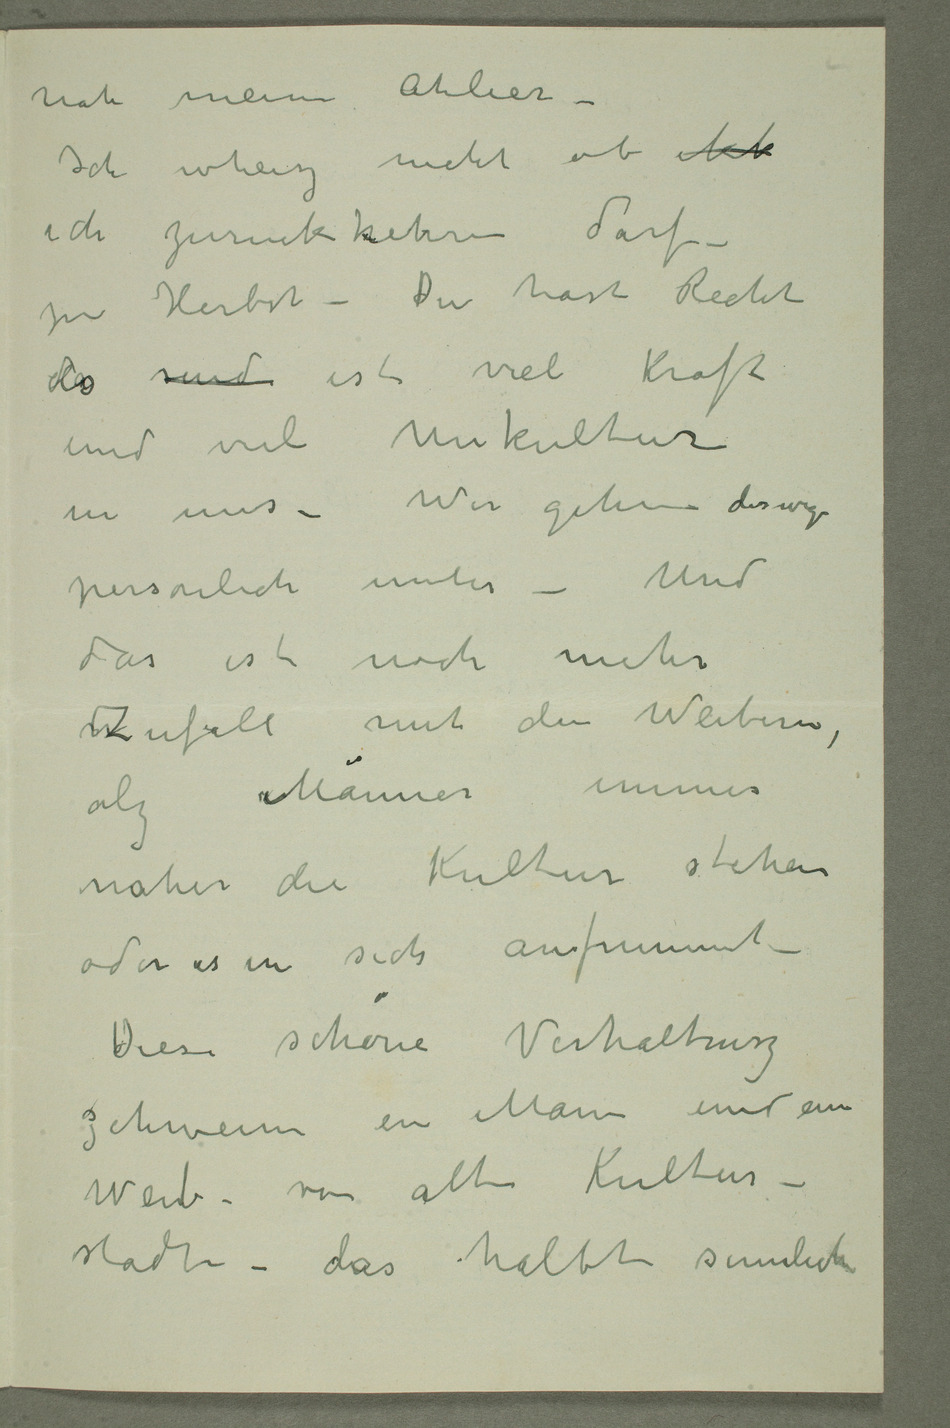 nah meine Atelier –
Ich wheisz nicht ob ikk
ich zurückkehren darf –
zu Herbst – Du hast Recht
das sind ist viel Kraft
und viel Unkultur
in uns – Wir gehen desweg
personlich unter – Und
das ist noch mehr
Zufall mit den Weibern,
alz Männer immer
naher die Kultur stehen
oder es in sich aufnimmt –
Diese schöne Verhaltnisz
zchweien en Mann und ein
Weib – von alte Kultur –
stadt – das halbt sinnlich